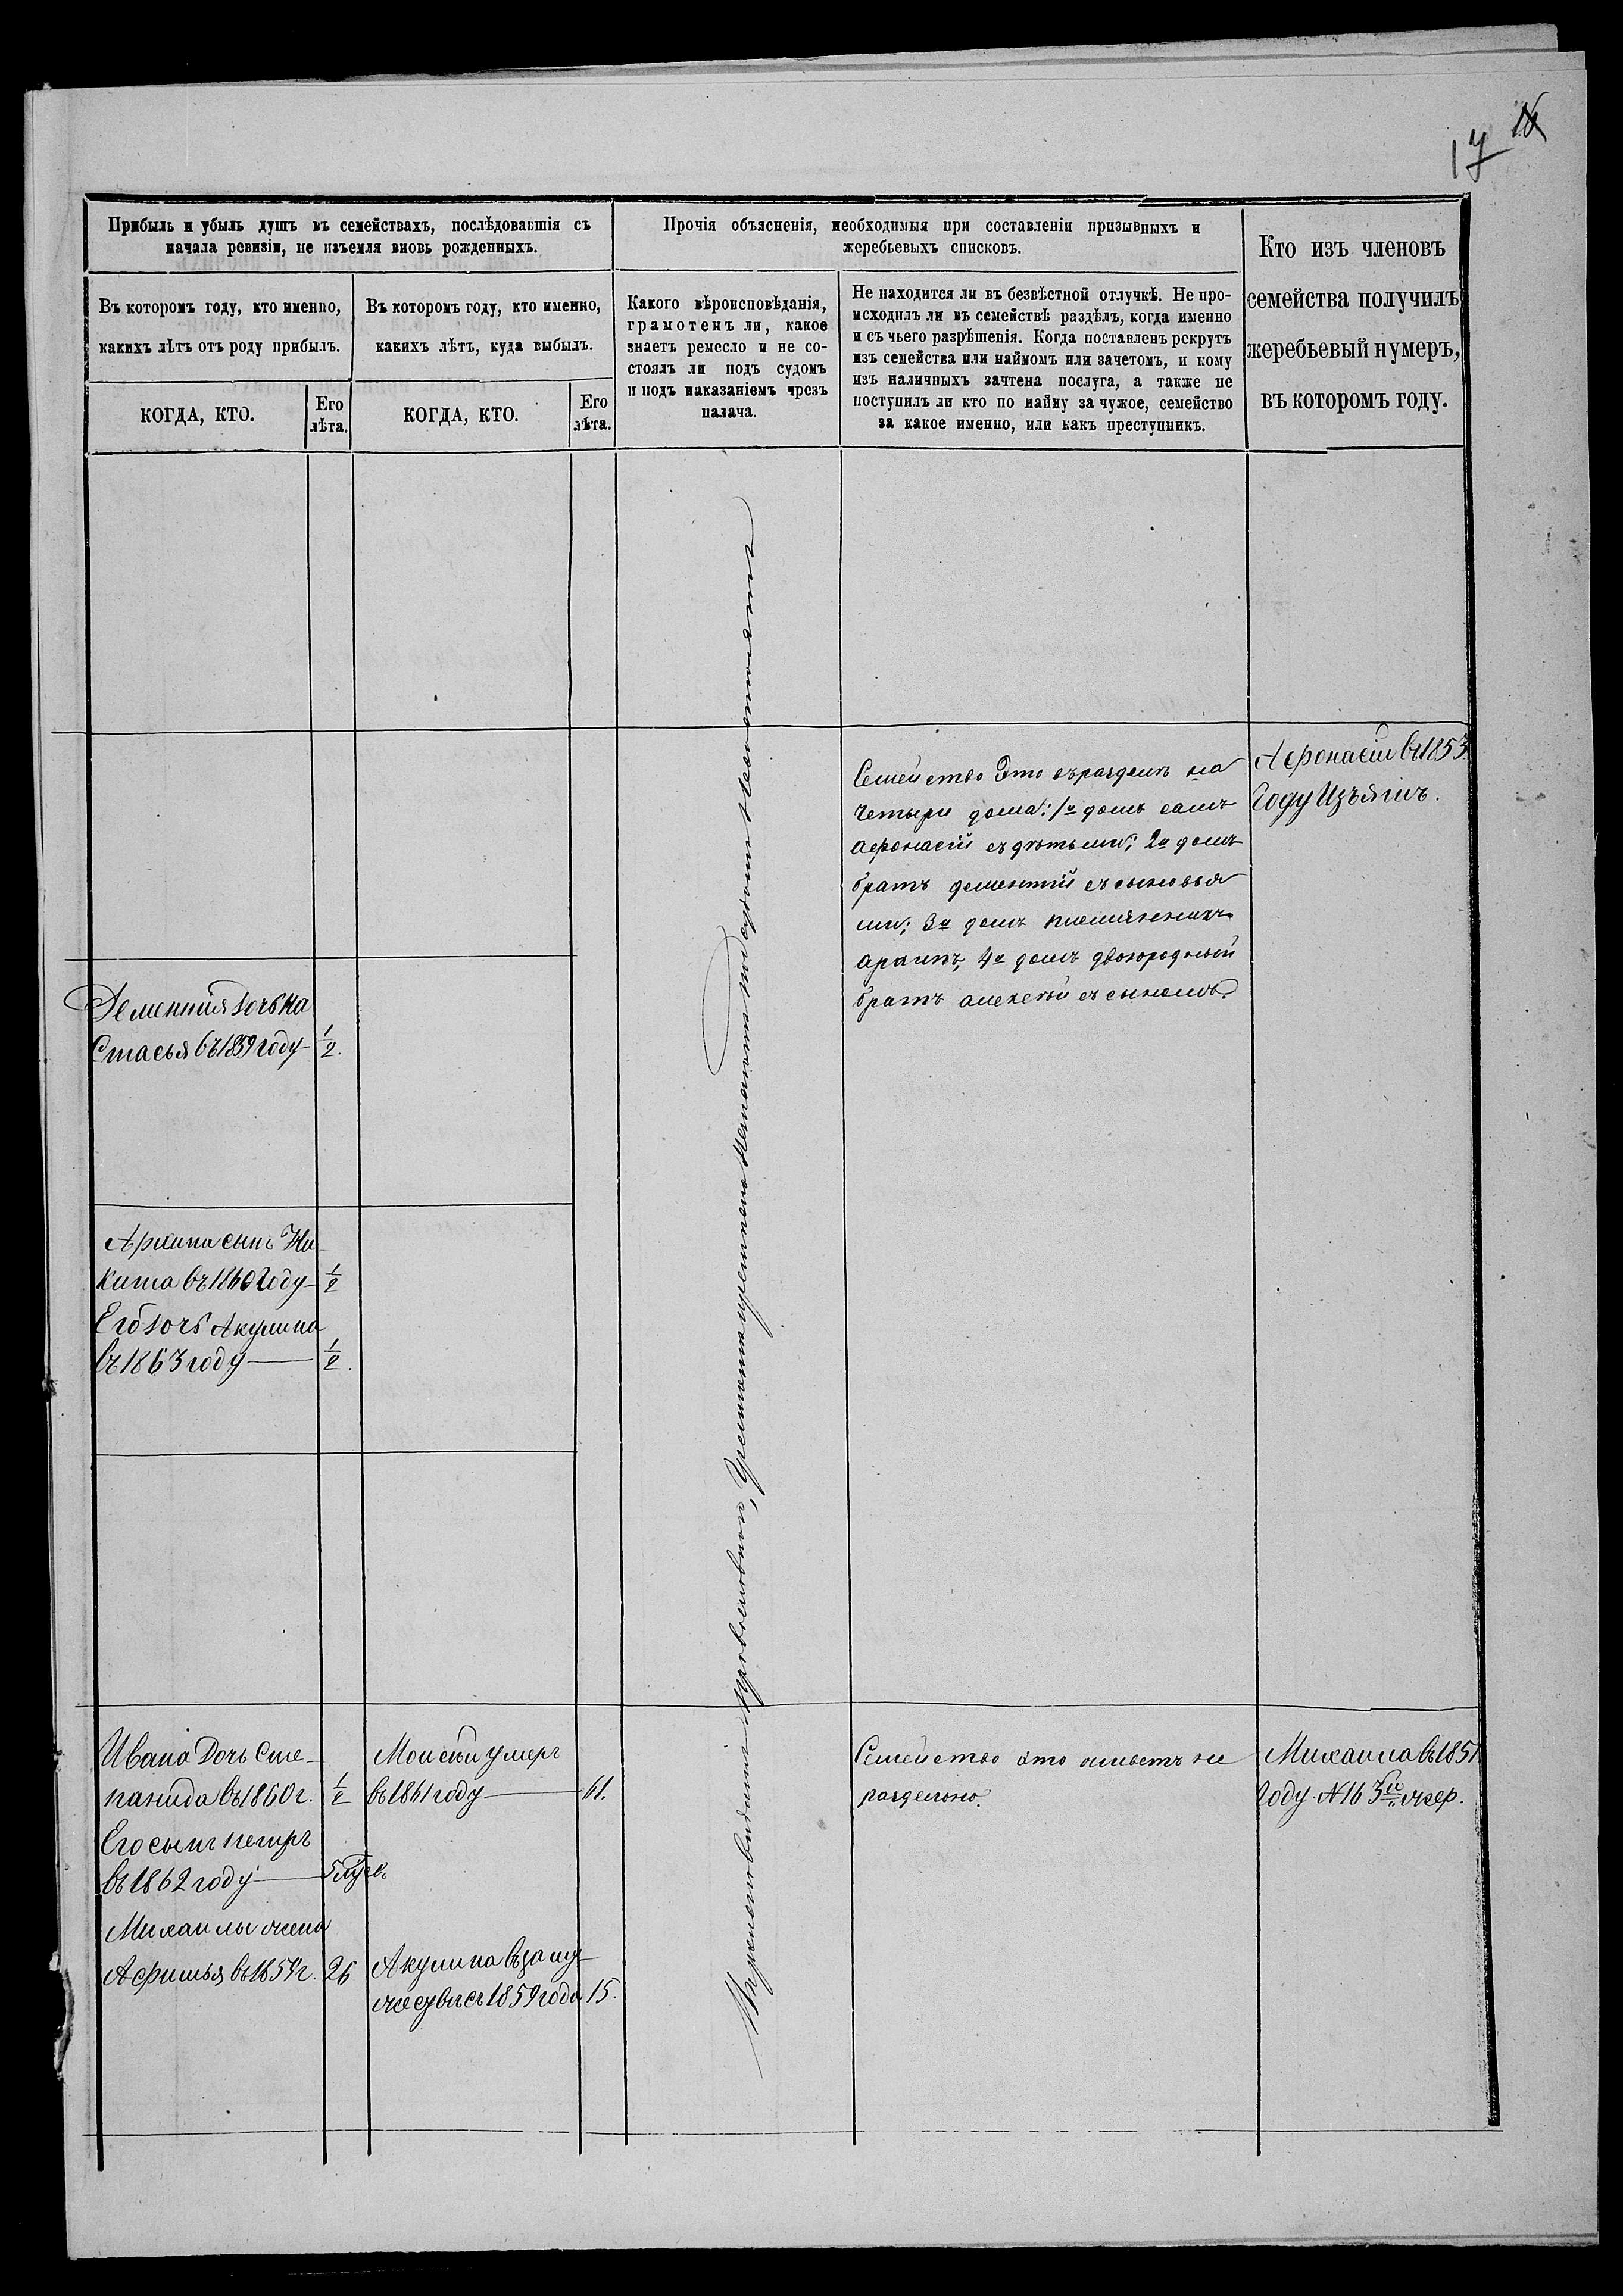 17 16
Прибыль и убыль душъ въ семействахъ, послѣдовавшія съ
начала ревизіи, не изъемля вновь рожденныхъ.
Въ которомъ году, кто именно,
какихъ лѣтъ отъ роду прибылъ.
КОГДА, КТО.
Его
лѣта.
Въ которомъ году, кто именно,
какихъ лѣтъ, куда выбылъ.
КОГДА, КТО.
Его
лѣта.
Прочія объясненія, необходимыя при составленіи призывныхъ и
жеребьевыхъ списковъ.
Какого вѣроисповѣданія,
грамотенъ ли, какое
знаетъ ремесло и не со-
стоялъ ли подъ судомъ
и подъ наказаніемъ чрезъ
палача.
Не находится ли въ безвѣстной отлучкѣ. Не про-
исходилъ ли въ семействѣ раздѣлъ, когда именно
и съ чьего разрѣшенія. Когда поставленъ рекрутъ
изъ семейства или наймомъ или зачетомъ, и кому
изъ наличныхъ зачтена послуга, а также не
поступилъ ли кто по найму за чужое, семейство
за какое именно, или какъ преступникъ.
Кто изъ членовъ
семейства получилъ
жеребьевый нумеръ,
въ которомъ году.
Семейство Это въ раздѣлѣ на
четыри дома: 1й домъ самъ
афонасій съ дѣтьми; 2й домъ
братъ дементій съ сыновья
ми; 3й домъ племянникъ
архипъ, 4й домъ двоюродный
братъ алексѣй съ сыномъ.
Афонасій въ 1853
Году Изъятъ.
Дементия дочь На
Стасья въ 1859 году 1/2.
Архипа сынъ Ни
кита въ 1860 Году 1/2
Его дочь Акулина
въ 1863 году 1/2.
Ивана Дочь Сте-
панида въ 1860 г. 1/2
Его сынъ петръ
въ 1862 году
Михаилы жена
Афимья въ 1859 г. 26
Моисѣй умеръ
въ 1861 году 61.
Акулина въ заму
жеству съ 1859 года 15.
Семейство это живетъ не
раздельно.
Михаила въ 1851
Году №16 жер.